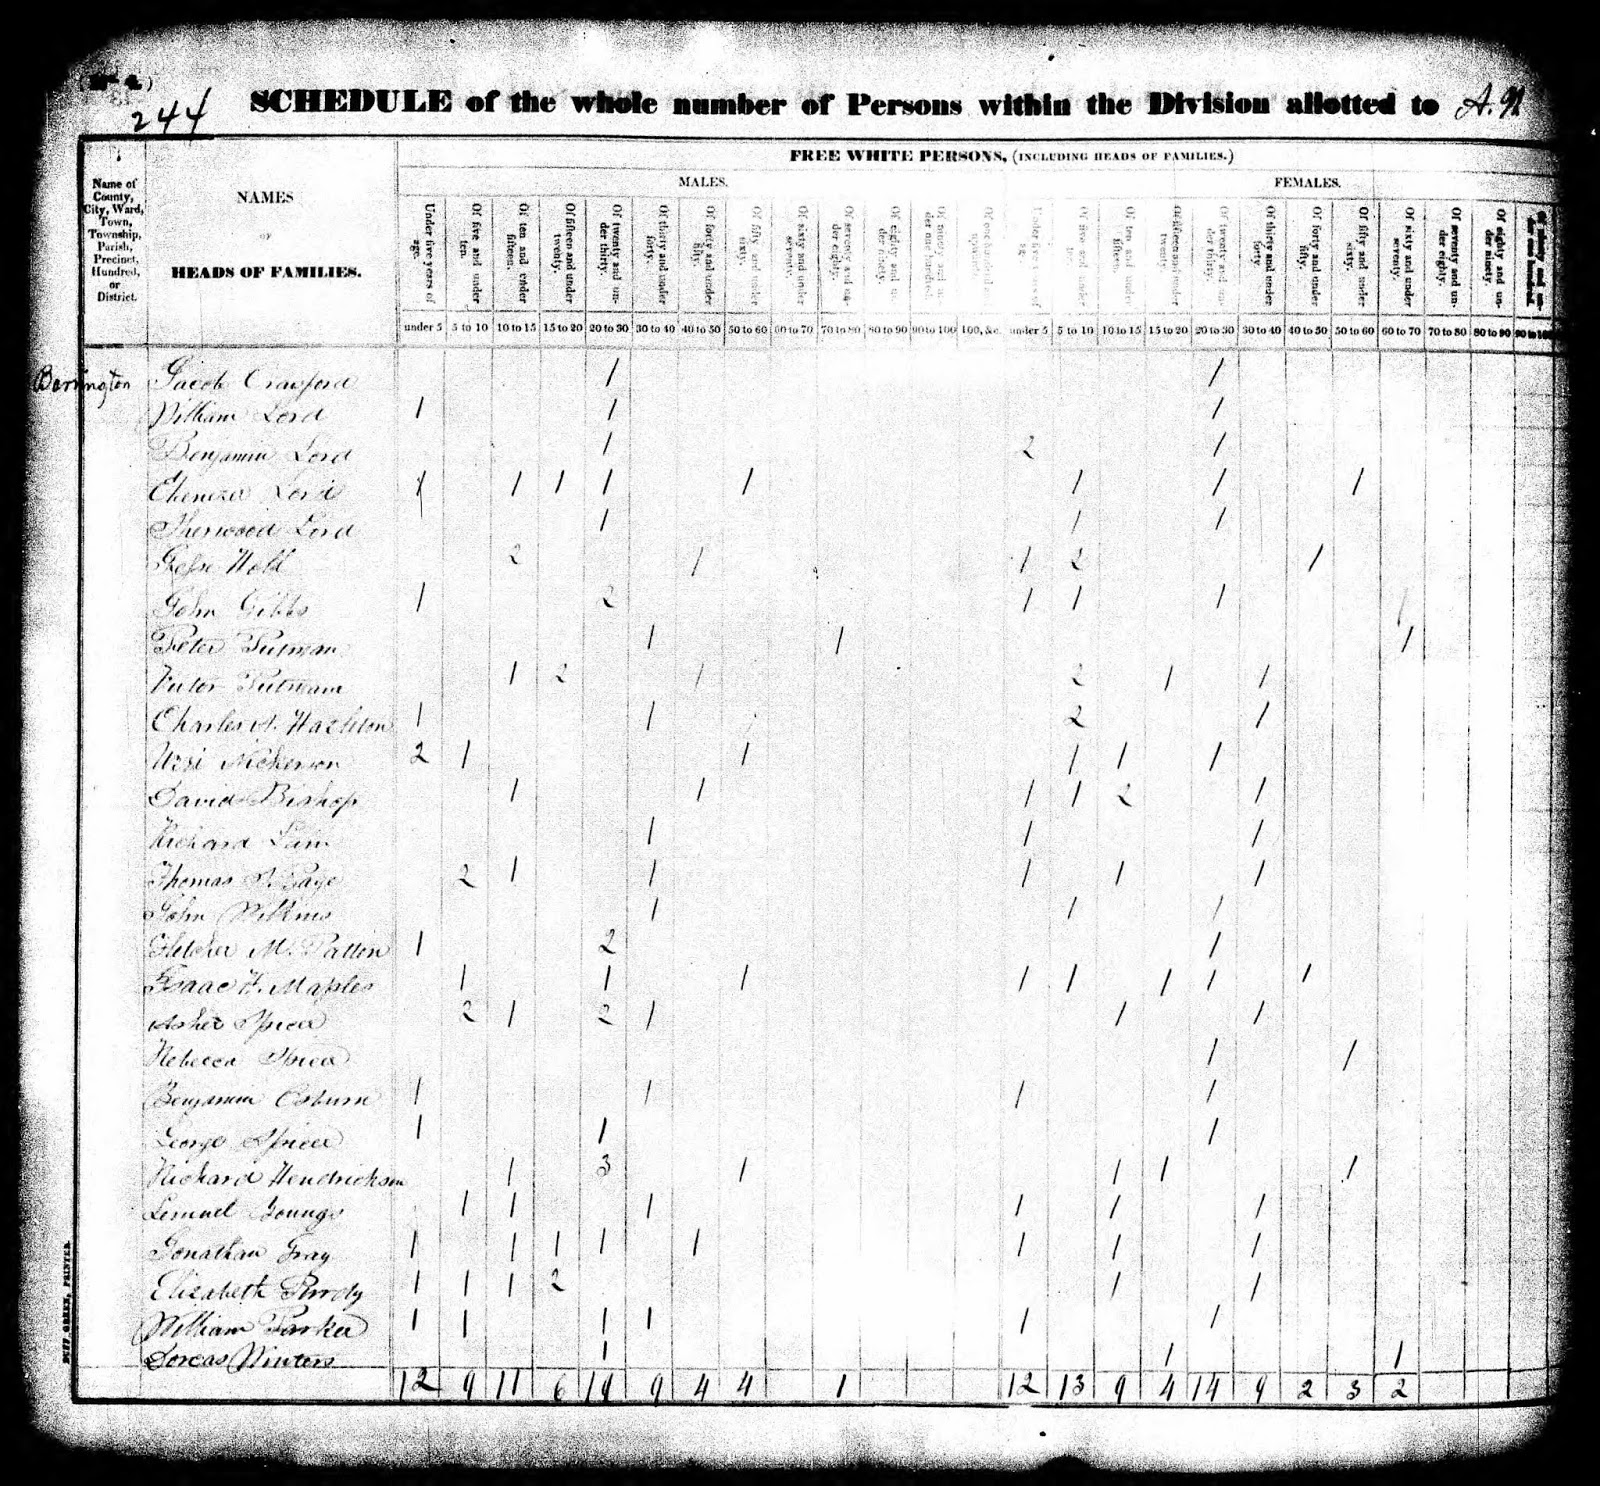 (No 4)
244
SCHEDULE of the whole number of Persons within the Division allotted to A. M
FREE WHITE PERSONS, (INCLUDING HEADS OF FAMILIES.)
MALES. FEMALES.
Name of County, City, Ward, Town, Township, Parish, Precinct, Hundred, or District.
NAMES
OF
HEADS OF FAMILIES.
Under five years of age. Of five and under ten. Of ten and under fifteen. Of fifteen and under twenty. Of twenty and under thirty. Of thirty and under forty. Of forty and under fifty. Of fifty and under sixty. Of sixty and under seventy. Of seventy and under eighty. Of eighty and under ninety. Of ninety and under one hundred. Of one hundred and upwards. Under five years of age. Of five and under ten. Of ten and under fifteen. Of fifteen and under twenty. Of twenty and under thirty. Of thirty and under forty. Of forty and under fifty. Of fifty and under sixty. Of sixty and under seventy. Of seventy and under eighty. Of eighty and under ninety. Of ninety and under one hundred.
under 5 5 to 10 10 to 15 15 to 20 20 to 30 30 to 40 40 to 50 50 to 60 60 to 70 70 to 80 80 to 90 90 to 100 100, &c. under 5 5 to 10 10 to 15 15 to 20 20 to 30 30 to 40 40 to 50 50 to 60 60 to 70 70 to 80 80 to 90 90 to 100
Barrington Jacob Crawford 1 1
William Lord 1 1 1
Benjamin Lord 1 2 1
Ebenezer Lord 1 1 1 1 1 1 1 1
Sherwood Lord 1 1 1
Jesse Holt 2 1 1 2 1
John Gibbs 1 2 1 1 1
Peter Putman 1 1 1
Victor Putnam 1 2 1 2 1 1
Charles H. Hazleton 1 1 2 1
Uzzi Nickerson 2 1 1 1 1 1
David Bishop 1 1 1 1 2 1
Richard Lain 1 1 1
Thomas Page 2 1 1 1 1 1
John Wilkins 1 1 1
Fletcher M. Patton 1 2 1
Isaac H. Maples 1 1 1 1 1 1 1 1
Asher Spicer 2 1 2 1 1 1
Rebecca Spicer 1 1
Benjamin Osburn 1 1 1 1
George Spicer 1 1 1
Richard Hendrickson 1 3 1 1 1 1
Lemuel Youngs 1 1 1 1 1 1
Jonathan Gray 1 1 1 1 1 1 1 1
Elizabeth Purdy 1 1 1 2 1 1
William Parker 1 1 1 1 1 1
Dorcas Winters 1 1 1
12 9 11 6 19 9 4 4 1 12 13 9 4 14 9 2 3 2
DUFF GREEN, PRINTER.